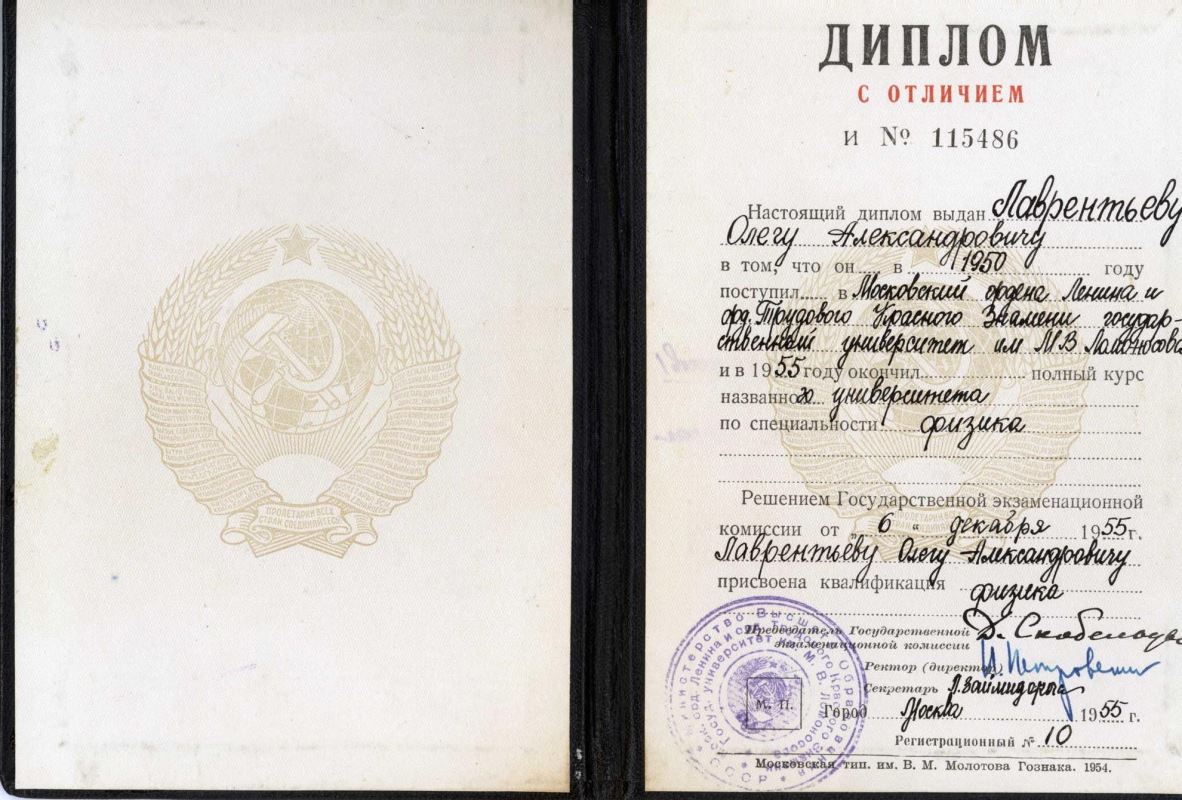 ПРОЛЕТАРИИ ВСЕХ
СТРАН, СОЕДИНЯЙТЕСЬ!
ДИПЛОМ
С ОТЛИЧИЕМ
И № 115486
Настоящий диплом выдан Лаврентьеву
Олегу Александровичу
в том, что он в 1950 году
поступил в Московский ордена Ленина и
орд. Трудового Красного Знамени государ-
ственный университет им М В Ломоносова
и в 1955 году окончил полный курс
названного университета
по специальности физика
Решением Государственной экзаменационной
комиссии от „ 6 “ декабря 1955 г.
Лаврентьеву Олегу Александровичу
присвоена квалификация физика
Председатель Государственной Д. Скобельцын
экзаменационной комиссии
Ректор (директор) И Петровский
Секретарь
М. П.
Город Москва 1955 г.
Регистрационный № 10
Московская тип. им. В. М. Молотова Гознака. 1954.
Министерство Высшего Образования СССР